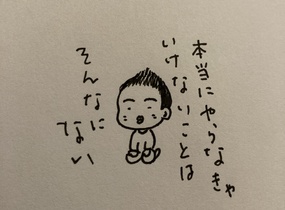 本当にやらなきゃ
いけないことは
そんなに
ない